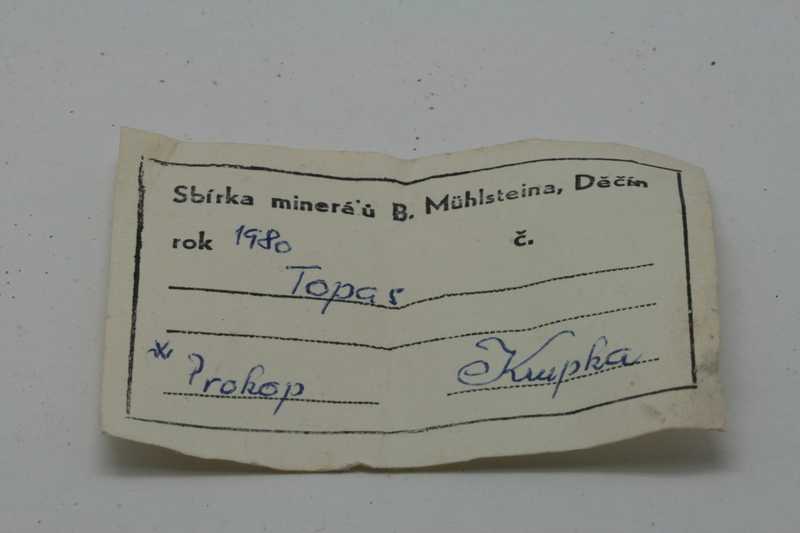 Sbírka minerálů B. Mühlsteina, Děčín
rok 1980 č.
Topas
Prokop Krupka